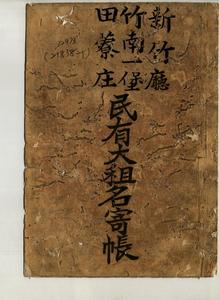 新竹廳
竹南一堡
田藔庄
民有大租名寄帳